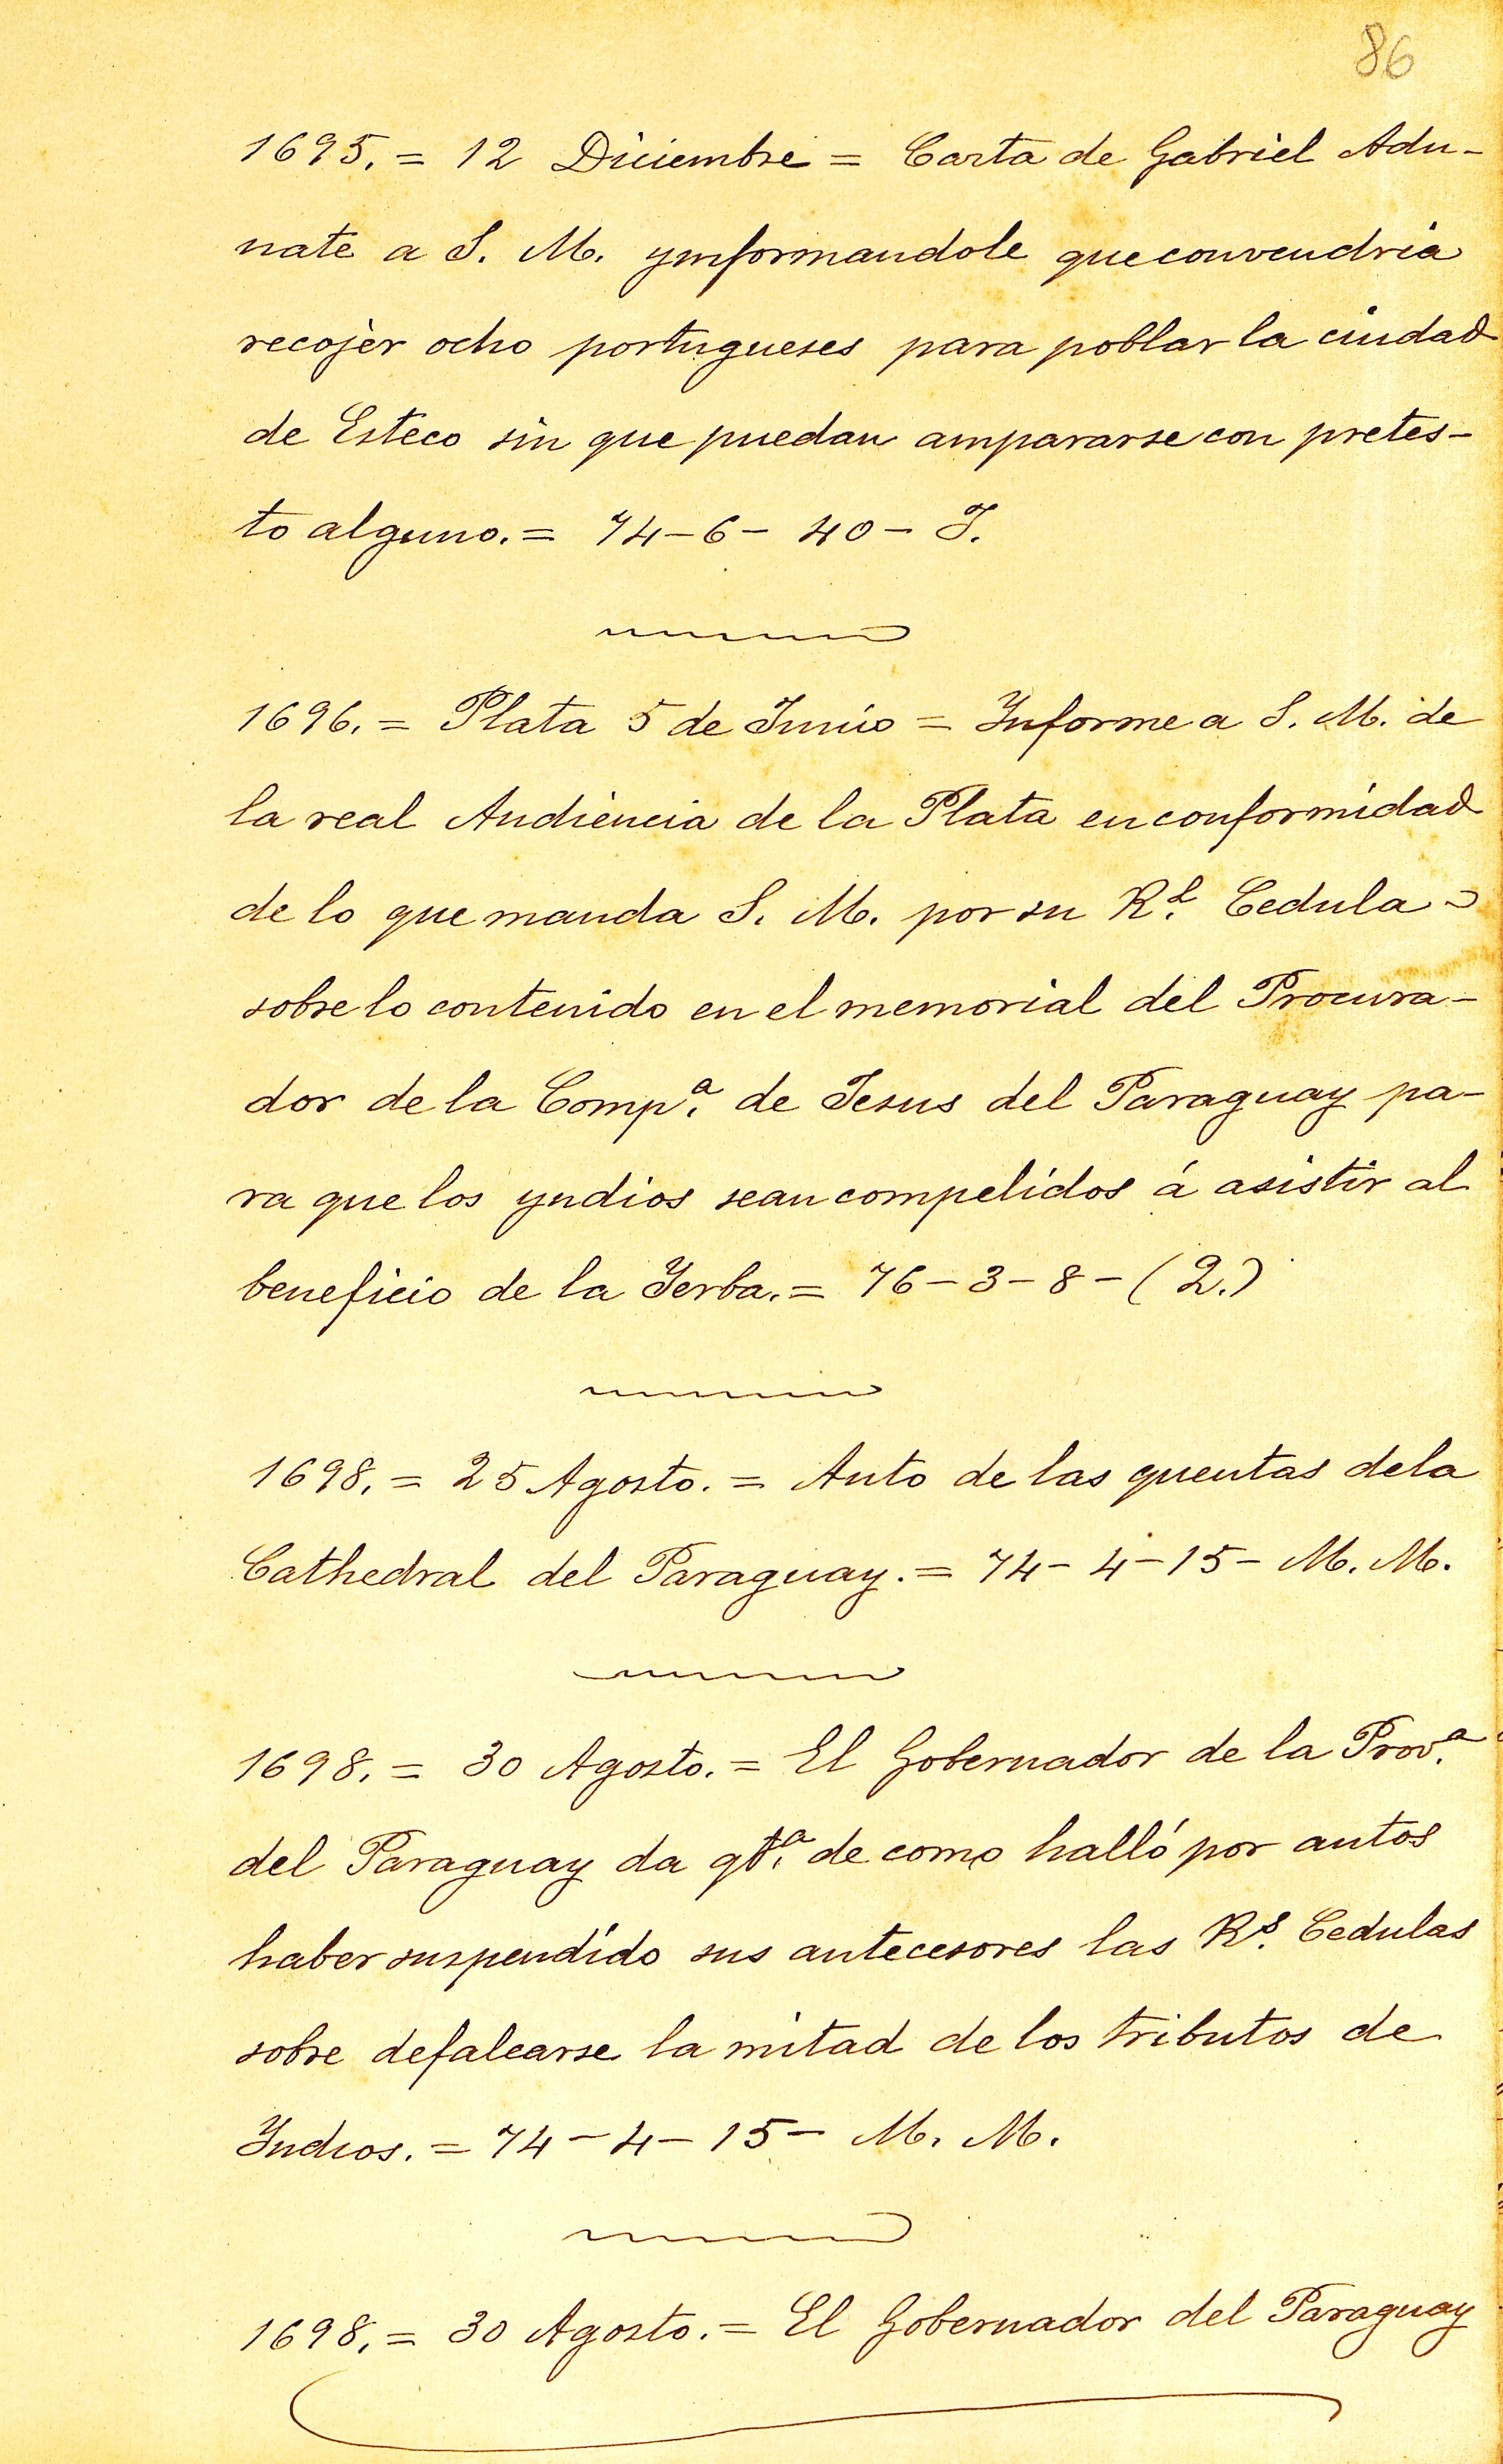 86
1695. = 12 Diciembre = Carta de Gabriel Adu-
nate a S. M. ynformandole que convendria
recojer ocho portugueses para poblar la ciudad
de Esteco sin que puedan ampararse con pretes-
to alguno. = 74-6-40- J.
1696. = Plata 5 de Junio = Informe a S. M. de
la real Audiencia de la Plata en conformidad
de lo que manda S. M. por su R.l Cedula =
sobre lo contenido en el memorial del Procura-
dor de la Comp.a de Jesus del Paraguay pa-
ra que los yndios sean compelidos á asistir al
beneficio de la Yerba. = 76-3-8-(2.)
1698. = 25 Agosto. = Auto de las quentas dela
Cathedral del Paraguay. = 74-4-15- M. M.
1698. = 30 Agosto. = El Gobernador de la Prov.a
del Paraguay da qt.a de como halló por autos
haber suspendido sus antecesores las R.s Cedulas
sobre defalcarse la mitad de los tributos de
Indios. = 74-4-15- M. M.
1698. = 30 Agosto. = El Gobernador del Paraguay